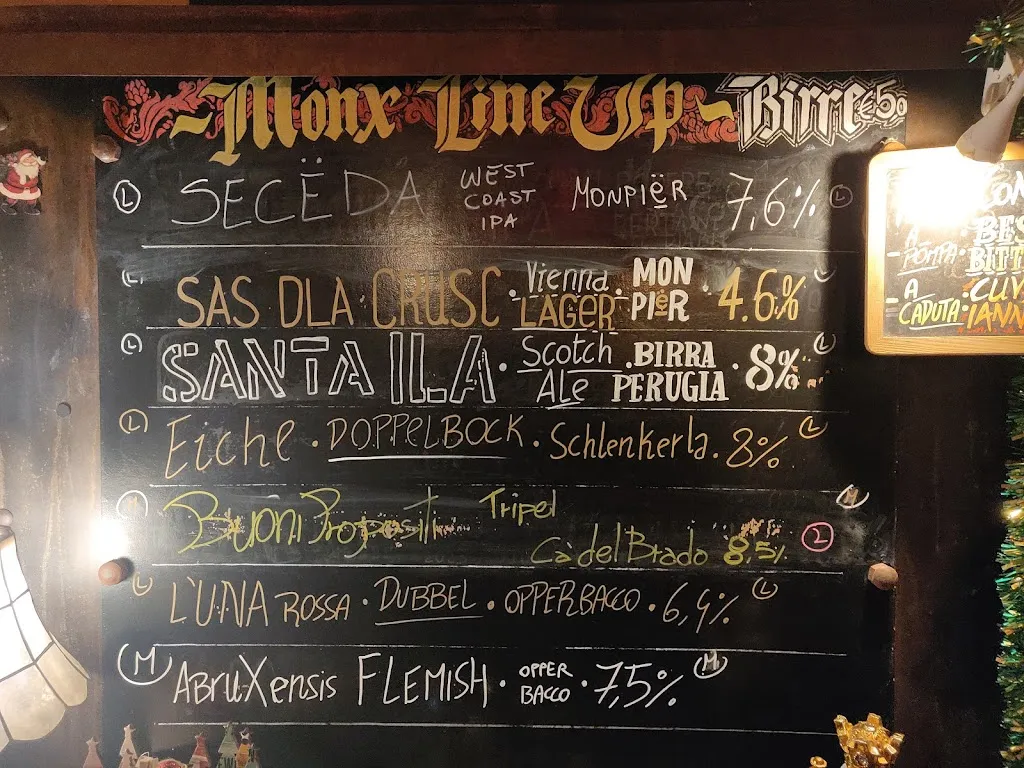 ~Monx Line Up~ Birre €50
L SECËDA WEST COAST IPA MONPIËR 7,6% L
L SAS DLA CRUSC · Vienna LAGER · MON PIËR 4.6% L
L SANTA ILA · Scotch Ale · BIRRA PERUGIA · 8% L
L Eiche · DOPPELBOCK · Schlenkerla · 8% L
M Buoni Propositi Tripel Cà del Brado 8,5% M 2
L L'UNA ROSSA · DUBBEL · OPPERBACCO · 6,4% L
M AbruXensis FLEMISH · OPPER BACCO · 7,5% M
A POMPA · BES BITT
- A CADUTA · CUV IANN